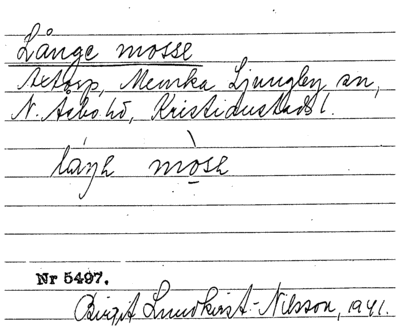 Långe mosse
Axtorp, Munka Ljungby sn,
N. Åsbo hd, Kristianstads l.
Nr 5497.
Birgit Lundkvist-Nilsson, 1941.